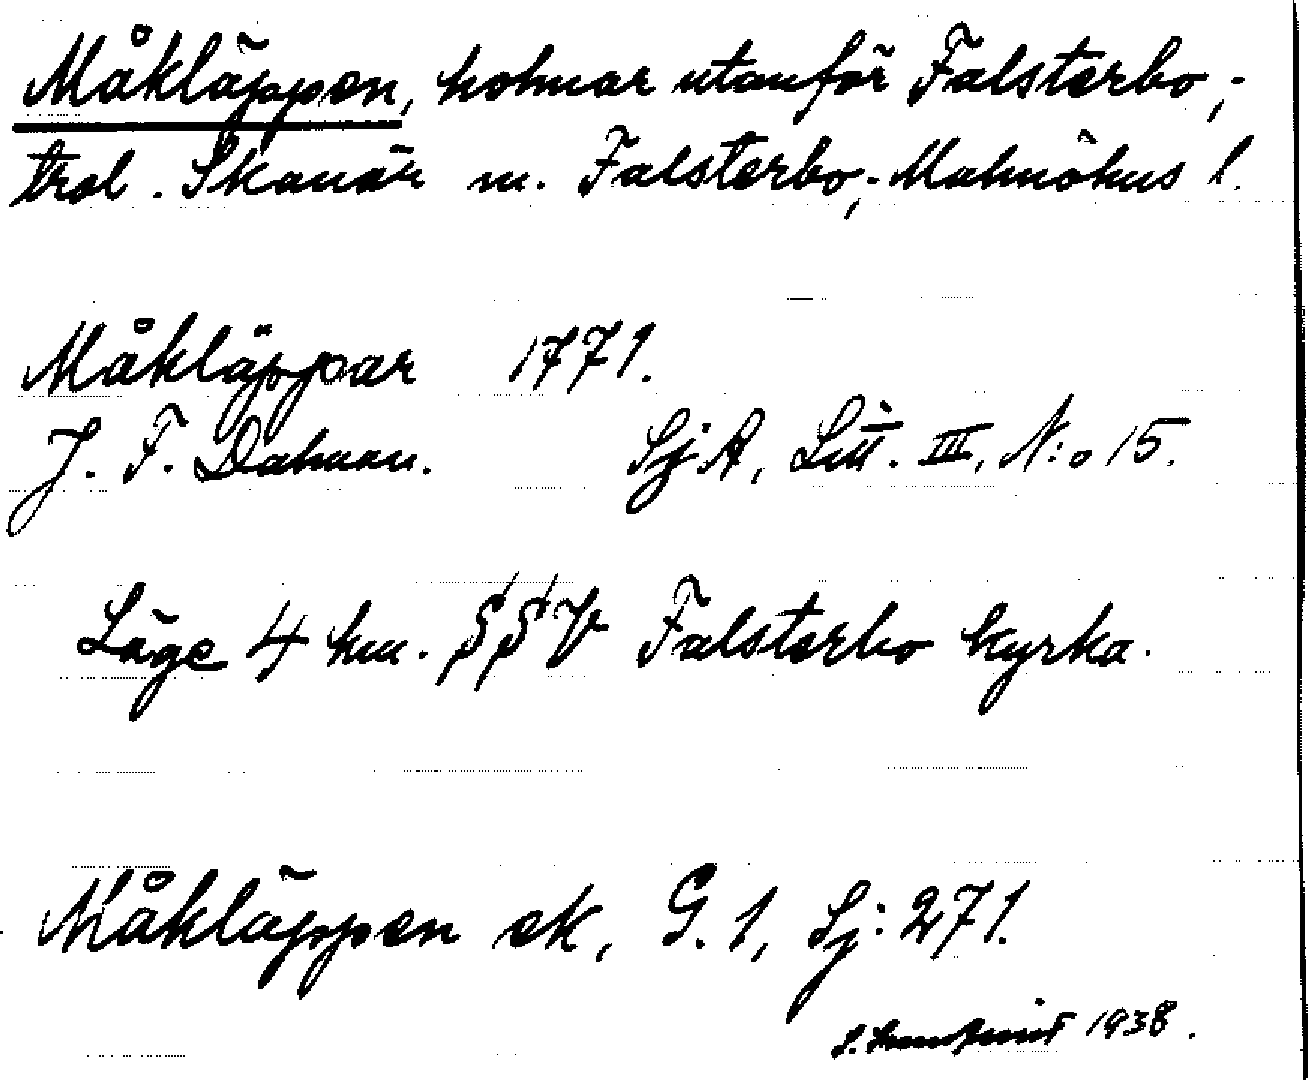 Måkläppen, holmar utanför Falsterbo,-
trol. Skanör m. Falsterbo,- Malmöhus l.
Måkläppar 1771.
J. F. Dahman. SjA, Litt. III, N:o 15.
Läge 4 km. SSV Falsterbo kyrka.
Måkläppen ek, G. 1, Sj: 271.
1938.